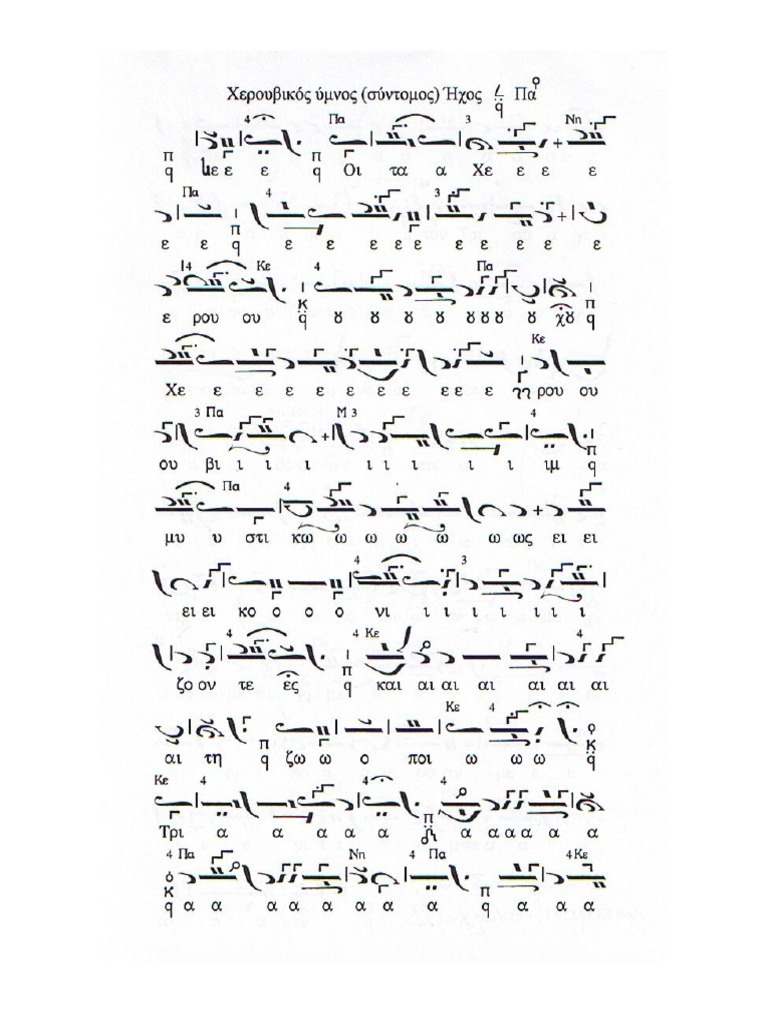 Χερουβικός ύμνος (σύντομος) Ήχος Πα
4 Πα 3 Νη
π q ε ε ε π q Οι τα α Χε ε ε ε ε
Πα 4 3
ε ε π q ε ε ε ε ε ε ε ε ε ε ε
4 Κε 4 Πα
ε ρου ου κ q ȣ ȣ ȣ ȣ ȣ ȣ ȣ ȣ χȣ π q
Κε
Χε ε ε ε ε ε ε ε ε ε ε γγ ρου ου
3 Πα Μ 3 4
ου βι ι ι ι ι ι ι ι ι ιμ π q
Πα 4
μυ υ στι κω ω ω ω ω ω ως ει ει
4 3
ει ει κο ο ο ο νι ι ι ι ι ι ι ι
4 4 Κε 4
ζο ον τε ες π q και αι αι αι αι αι αι
Κε 4
αι τη π q ζω ω ο ποι ω ω ω κ q
Κε 4 4 4
Τρι α α α α α π α α α α α α
4 Πα Νη 4 Πα 4 Κε
κ q α α α α α α α α π q α α α